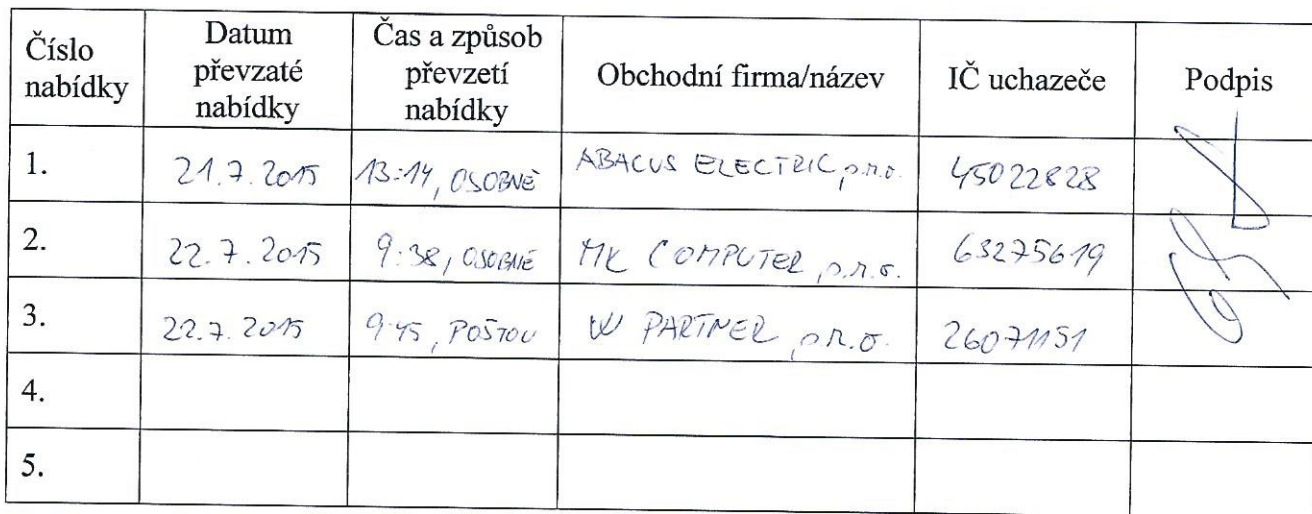 Číslo nabídky Datum převzaté nabídky Čas a způsob převzetí nabídky Obchodní firma/název IČ uchazeče Podpis
1. 21.7.2015 13:14, OSOBNĚ ABACUS ELECTRIC, s.r.o. 45022828
2. 22.7.2015 9:38, OSOBNĚ MK COMPUTER, s.r.o. 63275619
3. 22.7.2015 9:45, POŠTOU W PARTNER, s.r.o. 26071151
4.
5.